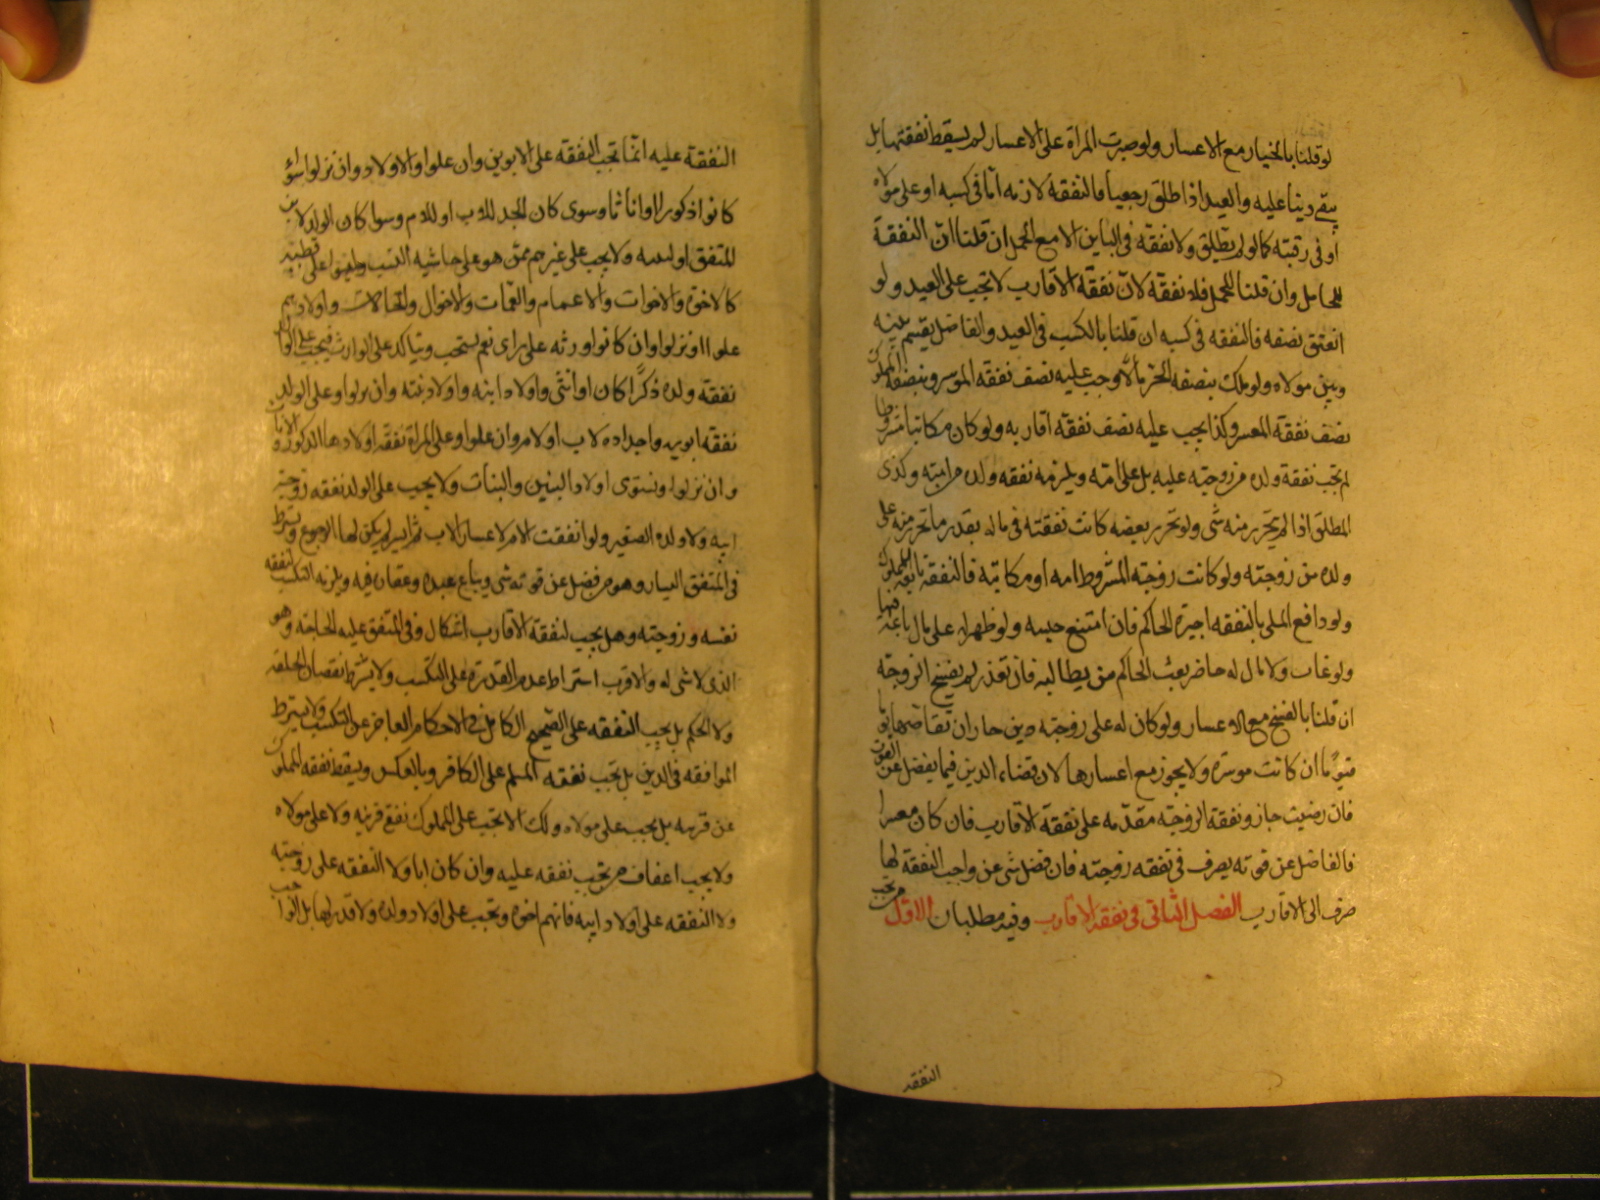 لو قلنا بالخيار مع الاعسار ولو صبرت المراة على الاعسار لم يسقط نفقتها بل
يبقى دينا عليه والعبد اذا طلق رجعيا فالنفقه لازمه اما فى كسبه او على مولاه
او فى رقبته كما لو لم يطلق ولا نفقه فى الباين الا مع الحمل ان قلنا ان النفقة
للحامل وان قلنا للحمل فلا نفقه لان نفقة الاقارب لا تجب على العبد ولو
انعتق نصفه فالنفقه فى كسبه ان قلنا بالكسب فى العبد والفاضل يقسم بينه
وبين مولاه ولو ملك بنصفه الحر مالا وجب عليه نصف نفقه الموسر وبنصفه المملوك
نصف نفقة المعسر وكذا يجب عليه نصف نفقه اقاربه ولو كان مكاتبا مشروطا
لم تجب نفقة ولده من زوجته عليه بل على امته ويلزمه نفقه ولده من امته وكذى
المطلق اذا لم يتحرر منه شى ولو تحرر بعضه كانت نفقته فى ماله بقدر ما تحرر منه على
ولده من زوجته ولو كانت زوجته المشروط امه او مكاتبة فالنفقه تابعه للملوك
ولو دافع الملى بالنفقه اجبره الحاكم فان امتنع حبسه ولو ظهر له على مال باعه فيها
ولو غاب ولا مال له حاضر بعث الحاكم من يطالبه فان تعذر لم يفسخ الزوجه
ان قلنا بالفسخ مع الاعسار ولو كان له على زوجته دين جاز ان تقاضها يوما
فيوما ان كانت موسره ولا يجوز مع اعسارها لان قضاء الدين فيما يفضل عن القوت
فان رضيت جاز ونفقة الزوجه مقدمه على نفقة الاقارب فان كان معسرا
فالفاضل عن قوته يصرف فى نفقه زوجته فان فضل شى عن واجب النفقة لها
صرف الى الاقارب الفصل الثانى فى نفقه الاقارب وفيه مطلبان الاول من تجب
النفقه
النفقة عليه انما تجب النفقه على الابوين وان علوا والاولاد وان نزلوا سوا
كانوا ذكورا او اناثا وسوى كان الجد للاب او للام وسوا كان الولد لابن
المنفق او لبنته ولا يجب على غيرهم ممن هو على حاشيه النسب وليسوا على قطبيه
كالاخوة والاخوات والاعمام والعمات والاخوال والخالات واولادهم
علوا او نزلوا وان كانوا ورثه على راى نعم يستحب ويتاكد على الوارث فيجب على الوالد
نفقة ولده ذكرا كان او انثى واولاد ابنه واولاد بنته وان نزلوا وعلى الولد
نفقه ابويه واجداده لاب او لام وان علوا وعلى المراة نفقه اولادها الذكور والاناث
وان نزلوا ويستوى اولاد البنين والبنات ولا يجب على الولد نفقه زوجة
ابيه ولا ولده الصغير ولو انفقت الام لاعسار الاب ثم ايسر لم يكن لها الرجوع ويشترط
فى المنفق اليسار وهو من فضل عن قوته شى ويباع عبده وعقاره فيه ويلزمه التكسب لنفقه
نفسه وزوجته وهل يجب لنفقة الاقارب اشكال وفى المنفق عليه الحاجة وهو
الذى لا شى له والاقرب اشتراط عدم القدرة على التكسب ولا يشترط نقصان الخلقه
ولا الحكم بل يجب النفقه على الصحيح الكامل فى الاحكام العاجز عن التكسب ولا يشترط
الموافقه فى الدين بل تجب نفقه المسلم على الكافر وبالعكس ويسقط نفقه المملوك
عن قريبه بل يجب على مولاه وكذلك لا تجب على المملوك نفقة قريبه ولا على مولاه
ولا يجب اعفاف من تجب نفقه عليه وان كان ابا ولا النفقه على زوجته
ولا النفقه على اولاد ابيه فانهم اخوه وتجب على اولاد ولده ولا قدر لها بل الواجب